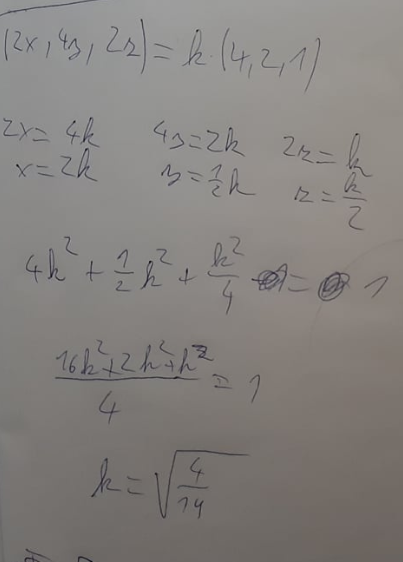 (2x, 4y, 2z) = k · (4, 2, 1)
2x = 4k 4y = 2k 2z = k
x = 2k y = 1/2 k z = k/2
4k² + 1/2 k² + k²/4 = 1
(16k² + 2k² + k²)/4 = 1
k = √(4/19)